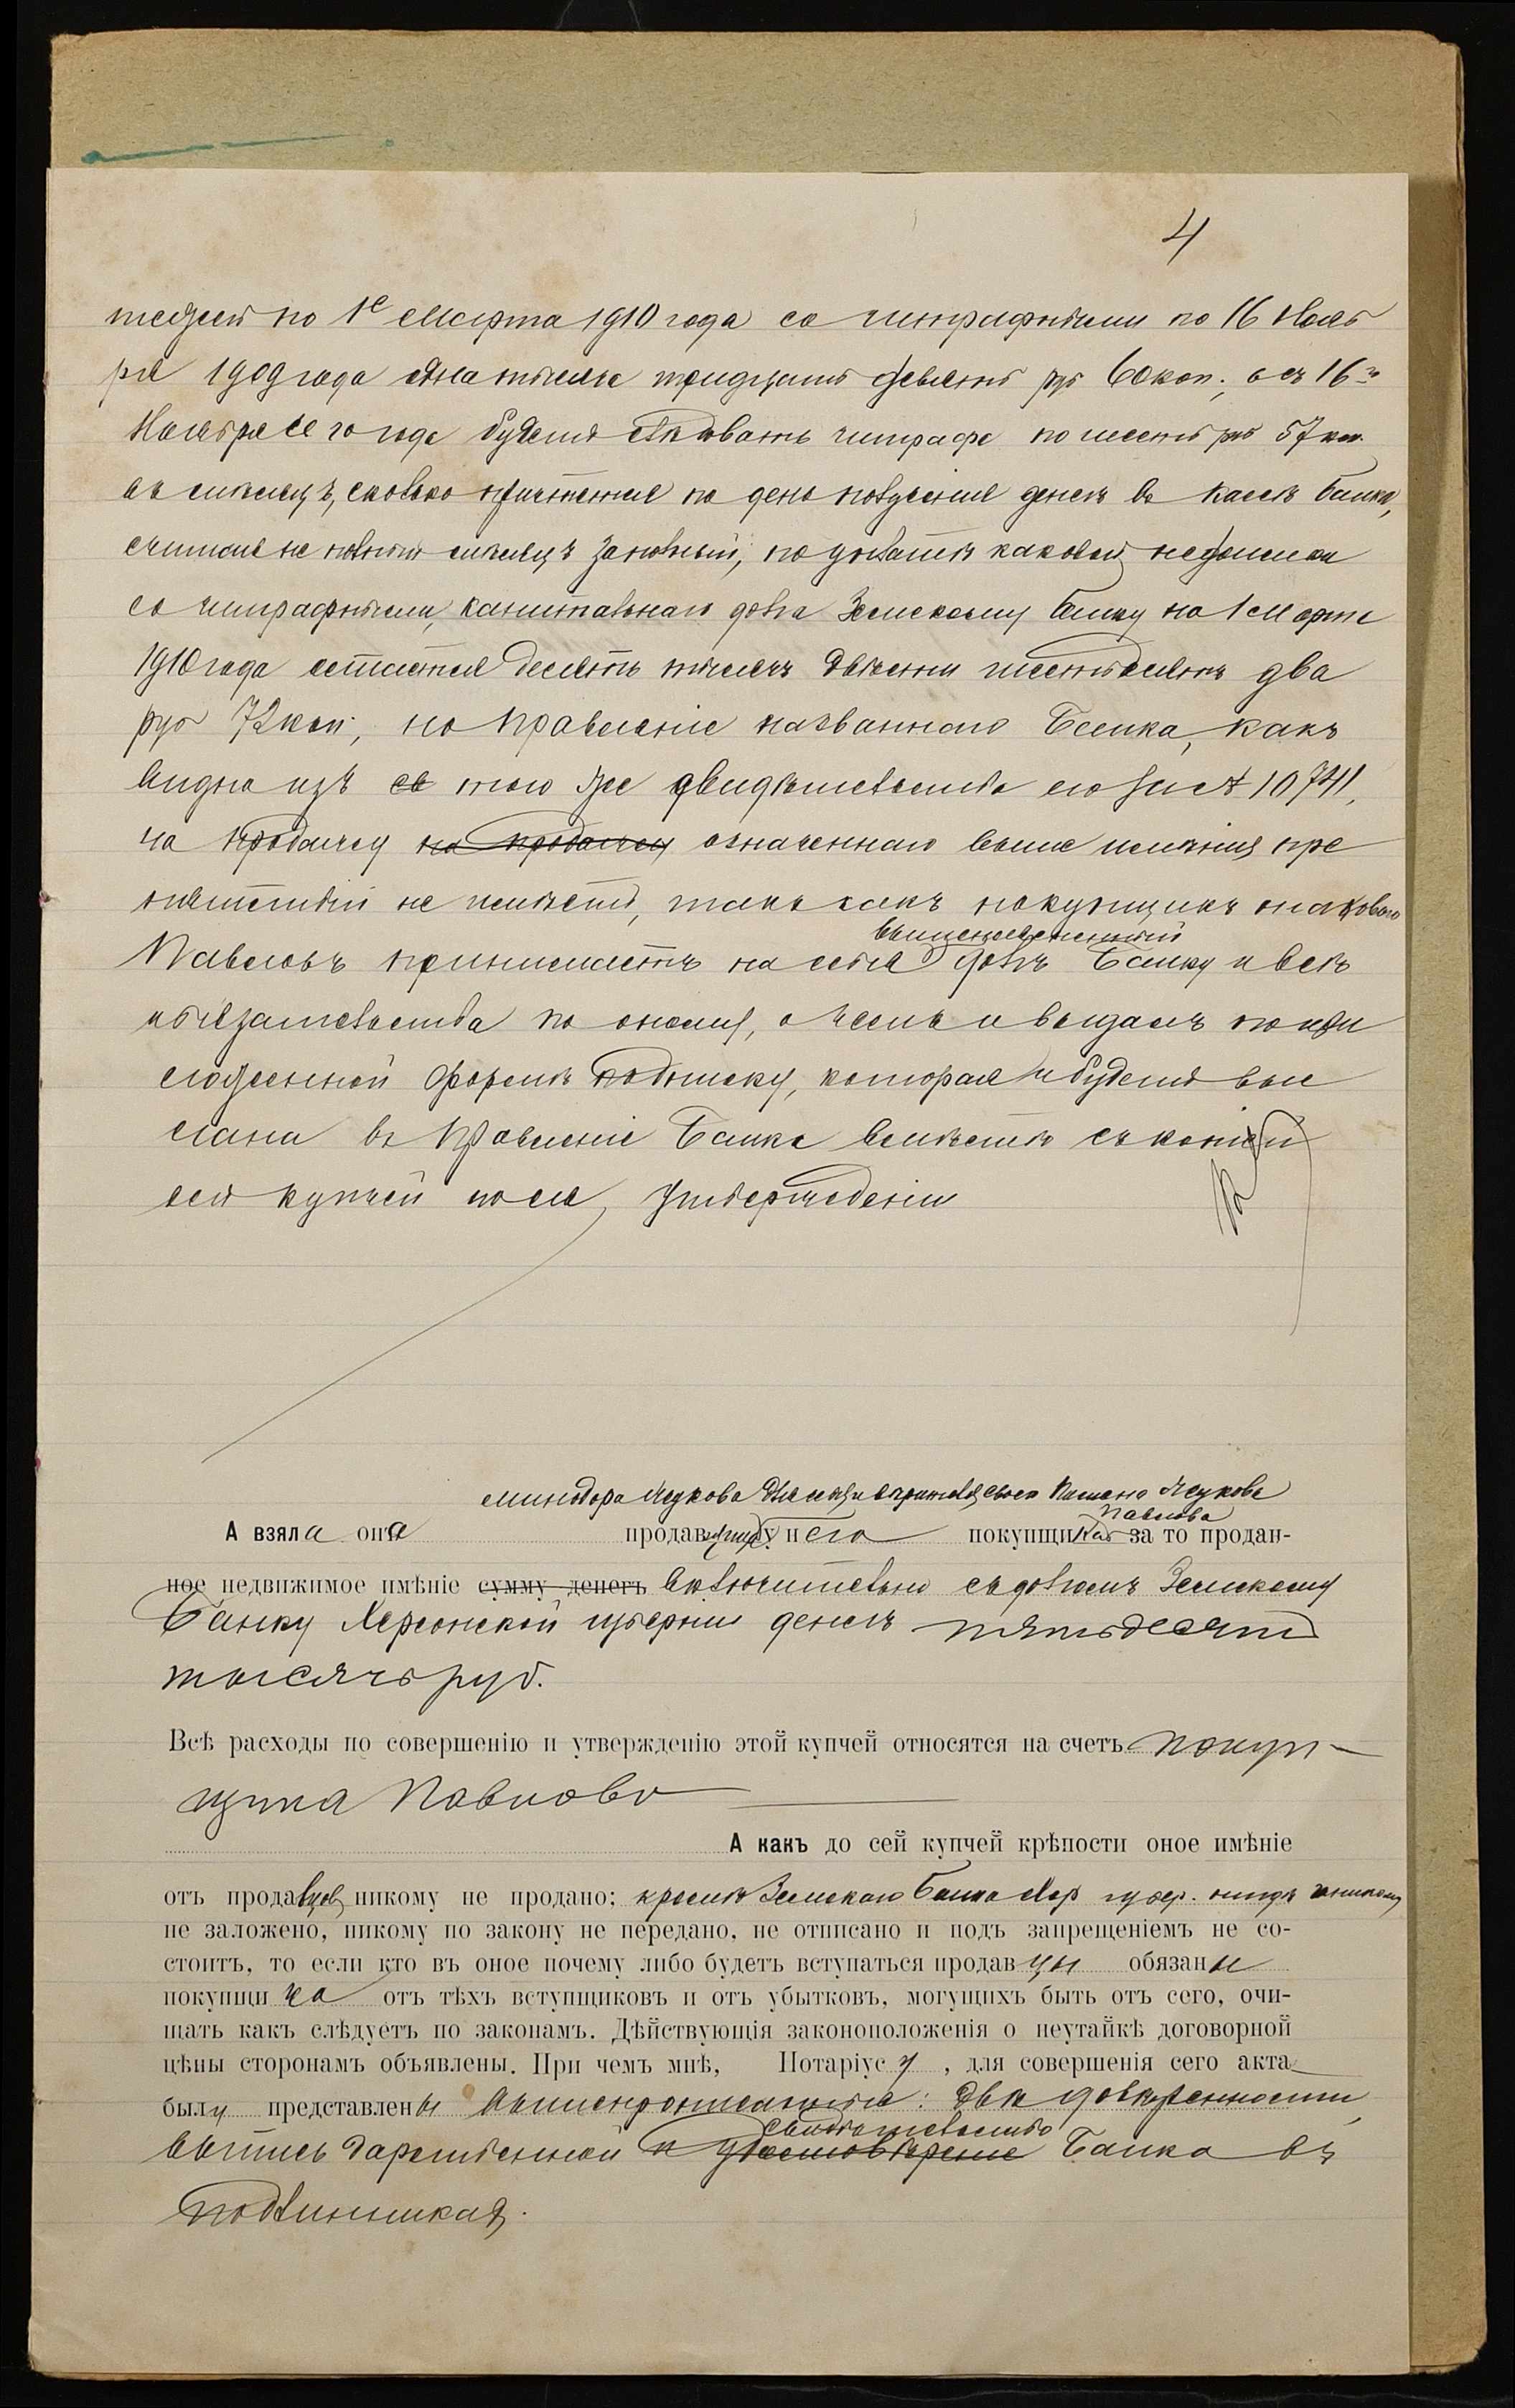 4
тежей по 1е Марта 1910 года со штрафными по 16 Нояб
ря 1909 года одна тысяча тридцать девять руб 60 коп., а съ 16го
Ноября сего года будетъ слѣдовать штрафа по шести руб 57 коп.
въ мѣсяцъ, сколько причтется по день полученія денегъ въ кассѣ банка,
считая не полный мѣсяцъ за полный, по уплатѣ каковой недоимки
со штрафными, капитальнаго долга Земскому банку на 1 Марта
1910 года останется десять тысячъ двѣсти шестьдесятъ два
руб 72 коп., но Правленіе названнаго Банка, какъ
видно изъ св того же свидѣтельства его за № 10741,
на продажу на продажу означеннаго выше имѣнія пре
пятствій не имѣетъ, такъ какъ покупщикъ такового
вышеозначенный
Павловъ принимаетъ на себя долгъ Банку и всѣ
обязательства по оному, о чемъ и выдалъ по уста
новленной формѣ подписку, которая и будетъ выс
лана въ Правленіе Банка вмѣстѣ съ копіей
сей купчей после утвержденія
Минодора Жукова для себя и довѣрителя своего Жукова
Павлова
А взяла она продавщица у него покупщика за то продан-
ное недвижимое имѣніе сумму денегъ включительно съ долгомъ Земскому
Банку Херсонской губерніи денегъ пятьдесятъ
тысячъ руб.
Всѣ расходы по совершенію и утвержденію этой купчей относятся на счетъ покуп-
щика Павлова
А какъ до сей купчей крѣпости оное имѣніе
отъ продавцовъ никому не продано; кромѣ Земскаго Банка Хер губер. нигдѣ и никому
не заложено, никому по закону не передано, не отписано и подъ запрещеніемъ не со-
стоитъ, то если кто въ оное почему либо будетъ вступаться продавцы обязаны
покупщика отъ тѣхъ вступщиковъ и отъ убытковъ, могущихъ быть отъ сего, очи-
щать какъ слѣдуетъ по законамъ. Дѣйствующія законоположенія о неутайкѣ договорной
цѣны сторонамъ объявлены. При чемъ мнѣ, Нотаріусу, для совершенія сего акта
были представлены вышепрописанныя: двѣ довѣренности,
свидѣтельство
выпись дарственной и удостовѣреніе Банка въ
подлинникахъ.